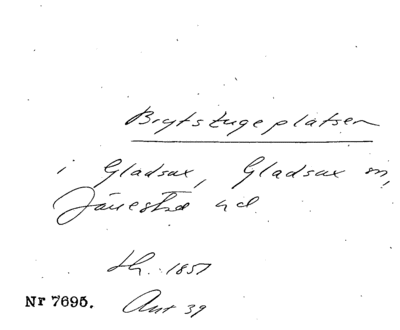 Brytstugeplatsen
i Gladsax, Gladsax sn,
Järrestad hd
th. 1857
Nr 7695. Ant 39